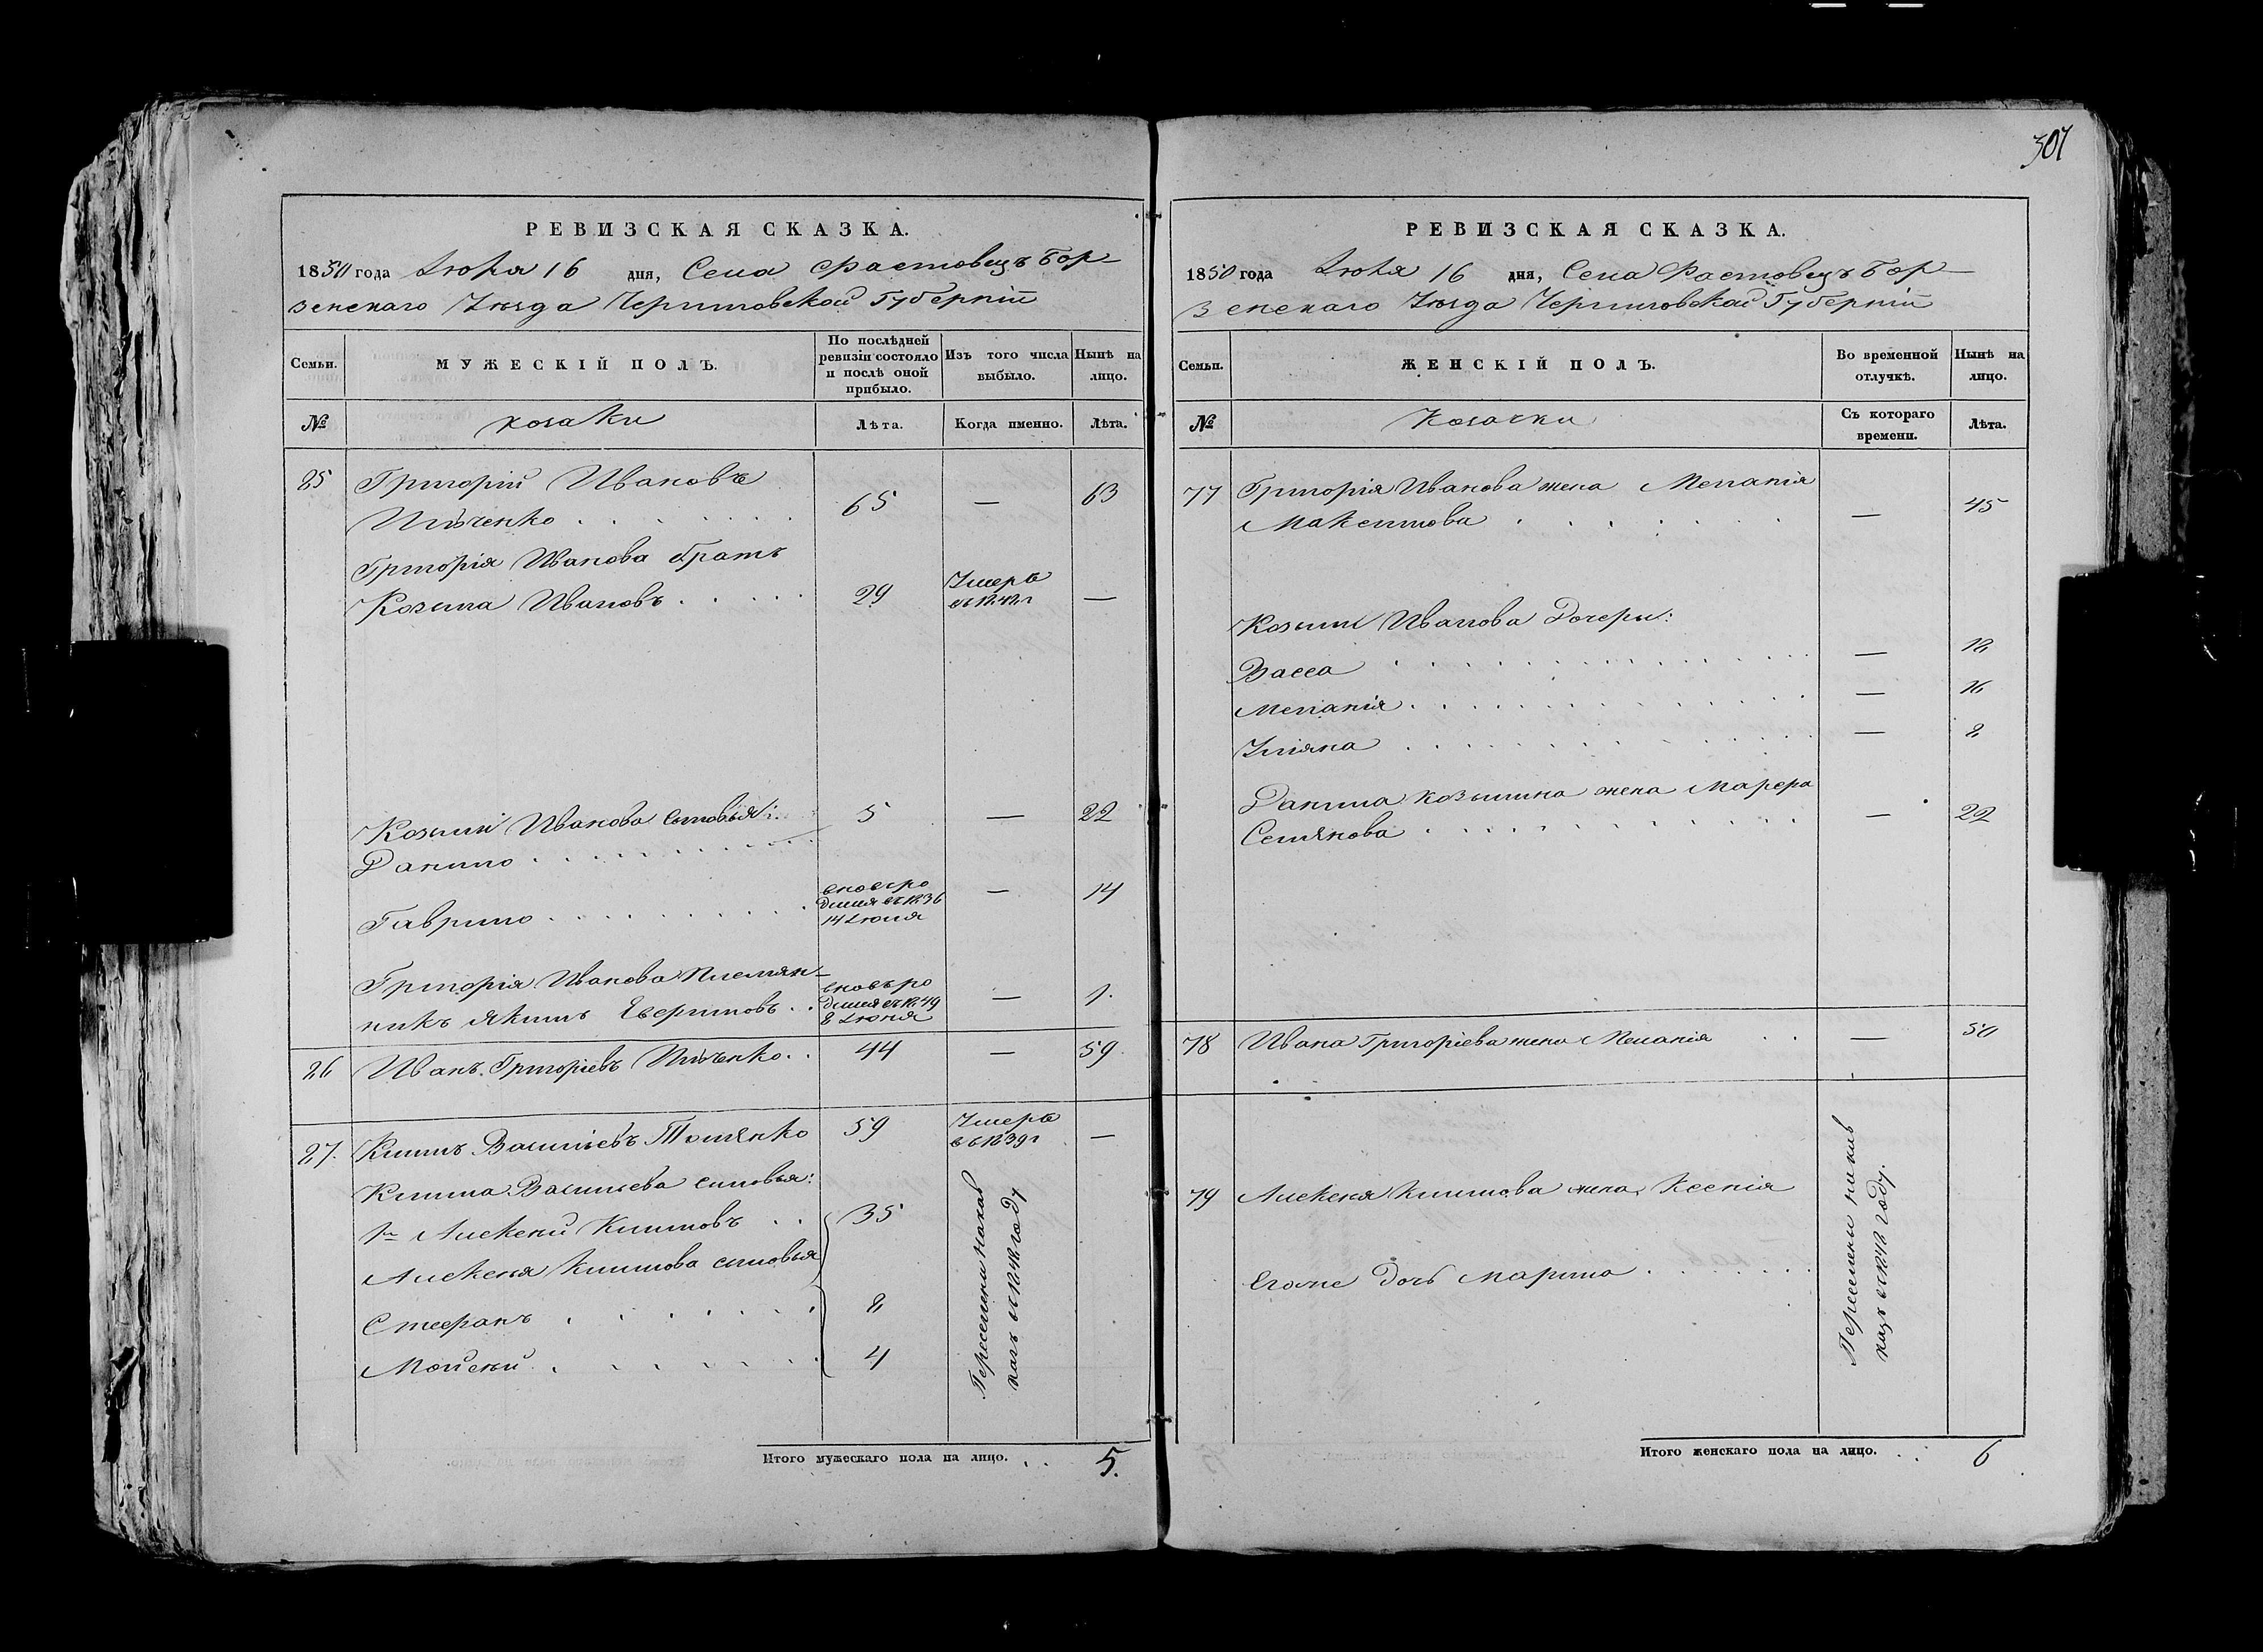 301
РЕВИЗСКАЯ СКАЗКА.
1850 года Іюня 16 дня, Села Фастовецъ Бор-
зенскаго Уѣзда Черниговской Губерніи
Семьи.
МУЖЕСКІЙ ПОЛЪ.
По послѣдней ревизіи состояло и послѣ оной прибыло.
Изъ того числа выбыло.
Нынѣ на лицо.
№
козаки
Лѣта.
Когда именно.
Лѣта.
25 Григорій Ивановъ
65 — 63
Григорія Иванова братъ
Козьма Ивановъ 29 Умеръ —
Козьмы Иванова сыновья: 5 — 22
Данило
Гаврило — 14
вновь ро
дился въ 1836
14 Іюля
Григорія Иванова племян-
никъ Якимъ — 1.
вновь ро
дился въ 1849
8 Іюня
26 Иванъ Григорьевъ 44 — 59
27. Климъ Васильевъ 59 Умеръ —
въ 1839 г
Клима Васильева сыновья:
1й Алексѣй Климовъ 35
Алексѣя Климова сыновья
Стефанъ 8
Мойсѣй 4
Переселены на Кав
казъ въ 1848 году
Итого мужескаго пола на лицо. 5.
РЕВИЗСКАЯ СКАЗКА.
1850 года Іюня 16 дня, Села Фастовецъ Бор-
зенскаго Уѣзда Черниговской Губерніи
Семьи.
ЖЕНСКІЙ ПОЛЪ.
Во временной отлучкѣ.
Нынѣ на лицо.
№
Козачки
Съ котораго времени.
Лѣта.
77 Григорія Иванова жена Меланія
Максимова — 45
Козьмы Иванова дочери:
Васса — 18
Меланія — 16
Уляна — 8
Данила Козьмина жена Марфа
Семенова — 22
78 Ивана Григоріева жена Меланія — 50
79 Алексѣя Климова жена Ксенія
Его же дочь Марина
Переселены на Кав
казъ въ 1848 году.
Итого женскаго пола на лицо. 6